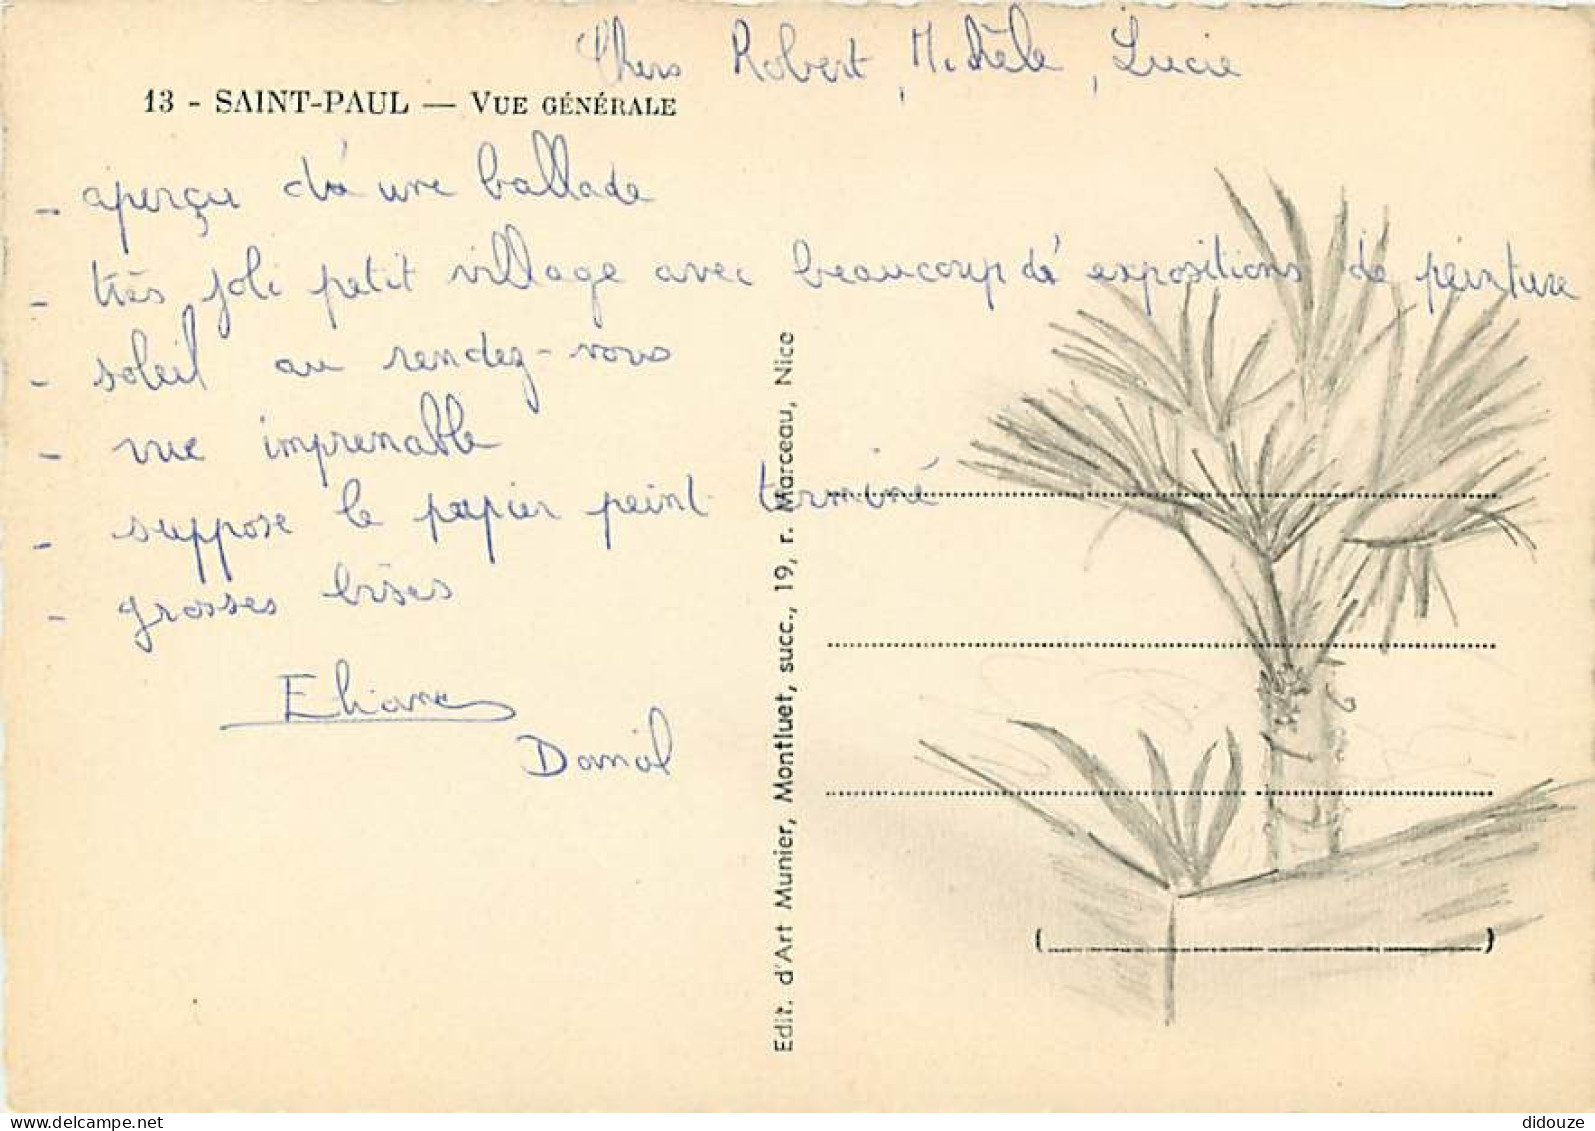 Chers Robert, Michèle, Lucie
13 - SAINT-PAUL — VUE GÉNÉRALE
- aperçu d'une ballade
- très joli petit village avec beaucoup d'expositions de peinture
- soleil au rendez-vous
- vue imprenable
- suppose le papier peint terminé
- grosses bises
Eliane
Daniel
Edit. d'Art Munier, Montluet, succ., 19, r. Marceau, Nice
delcampe.net
didouze